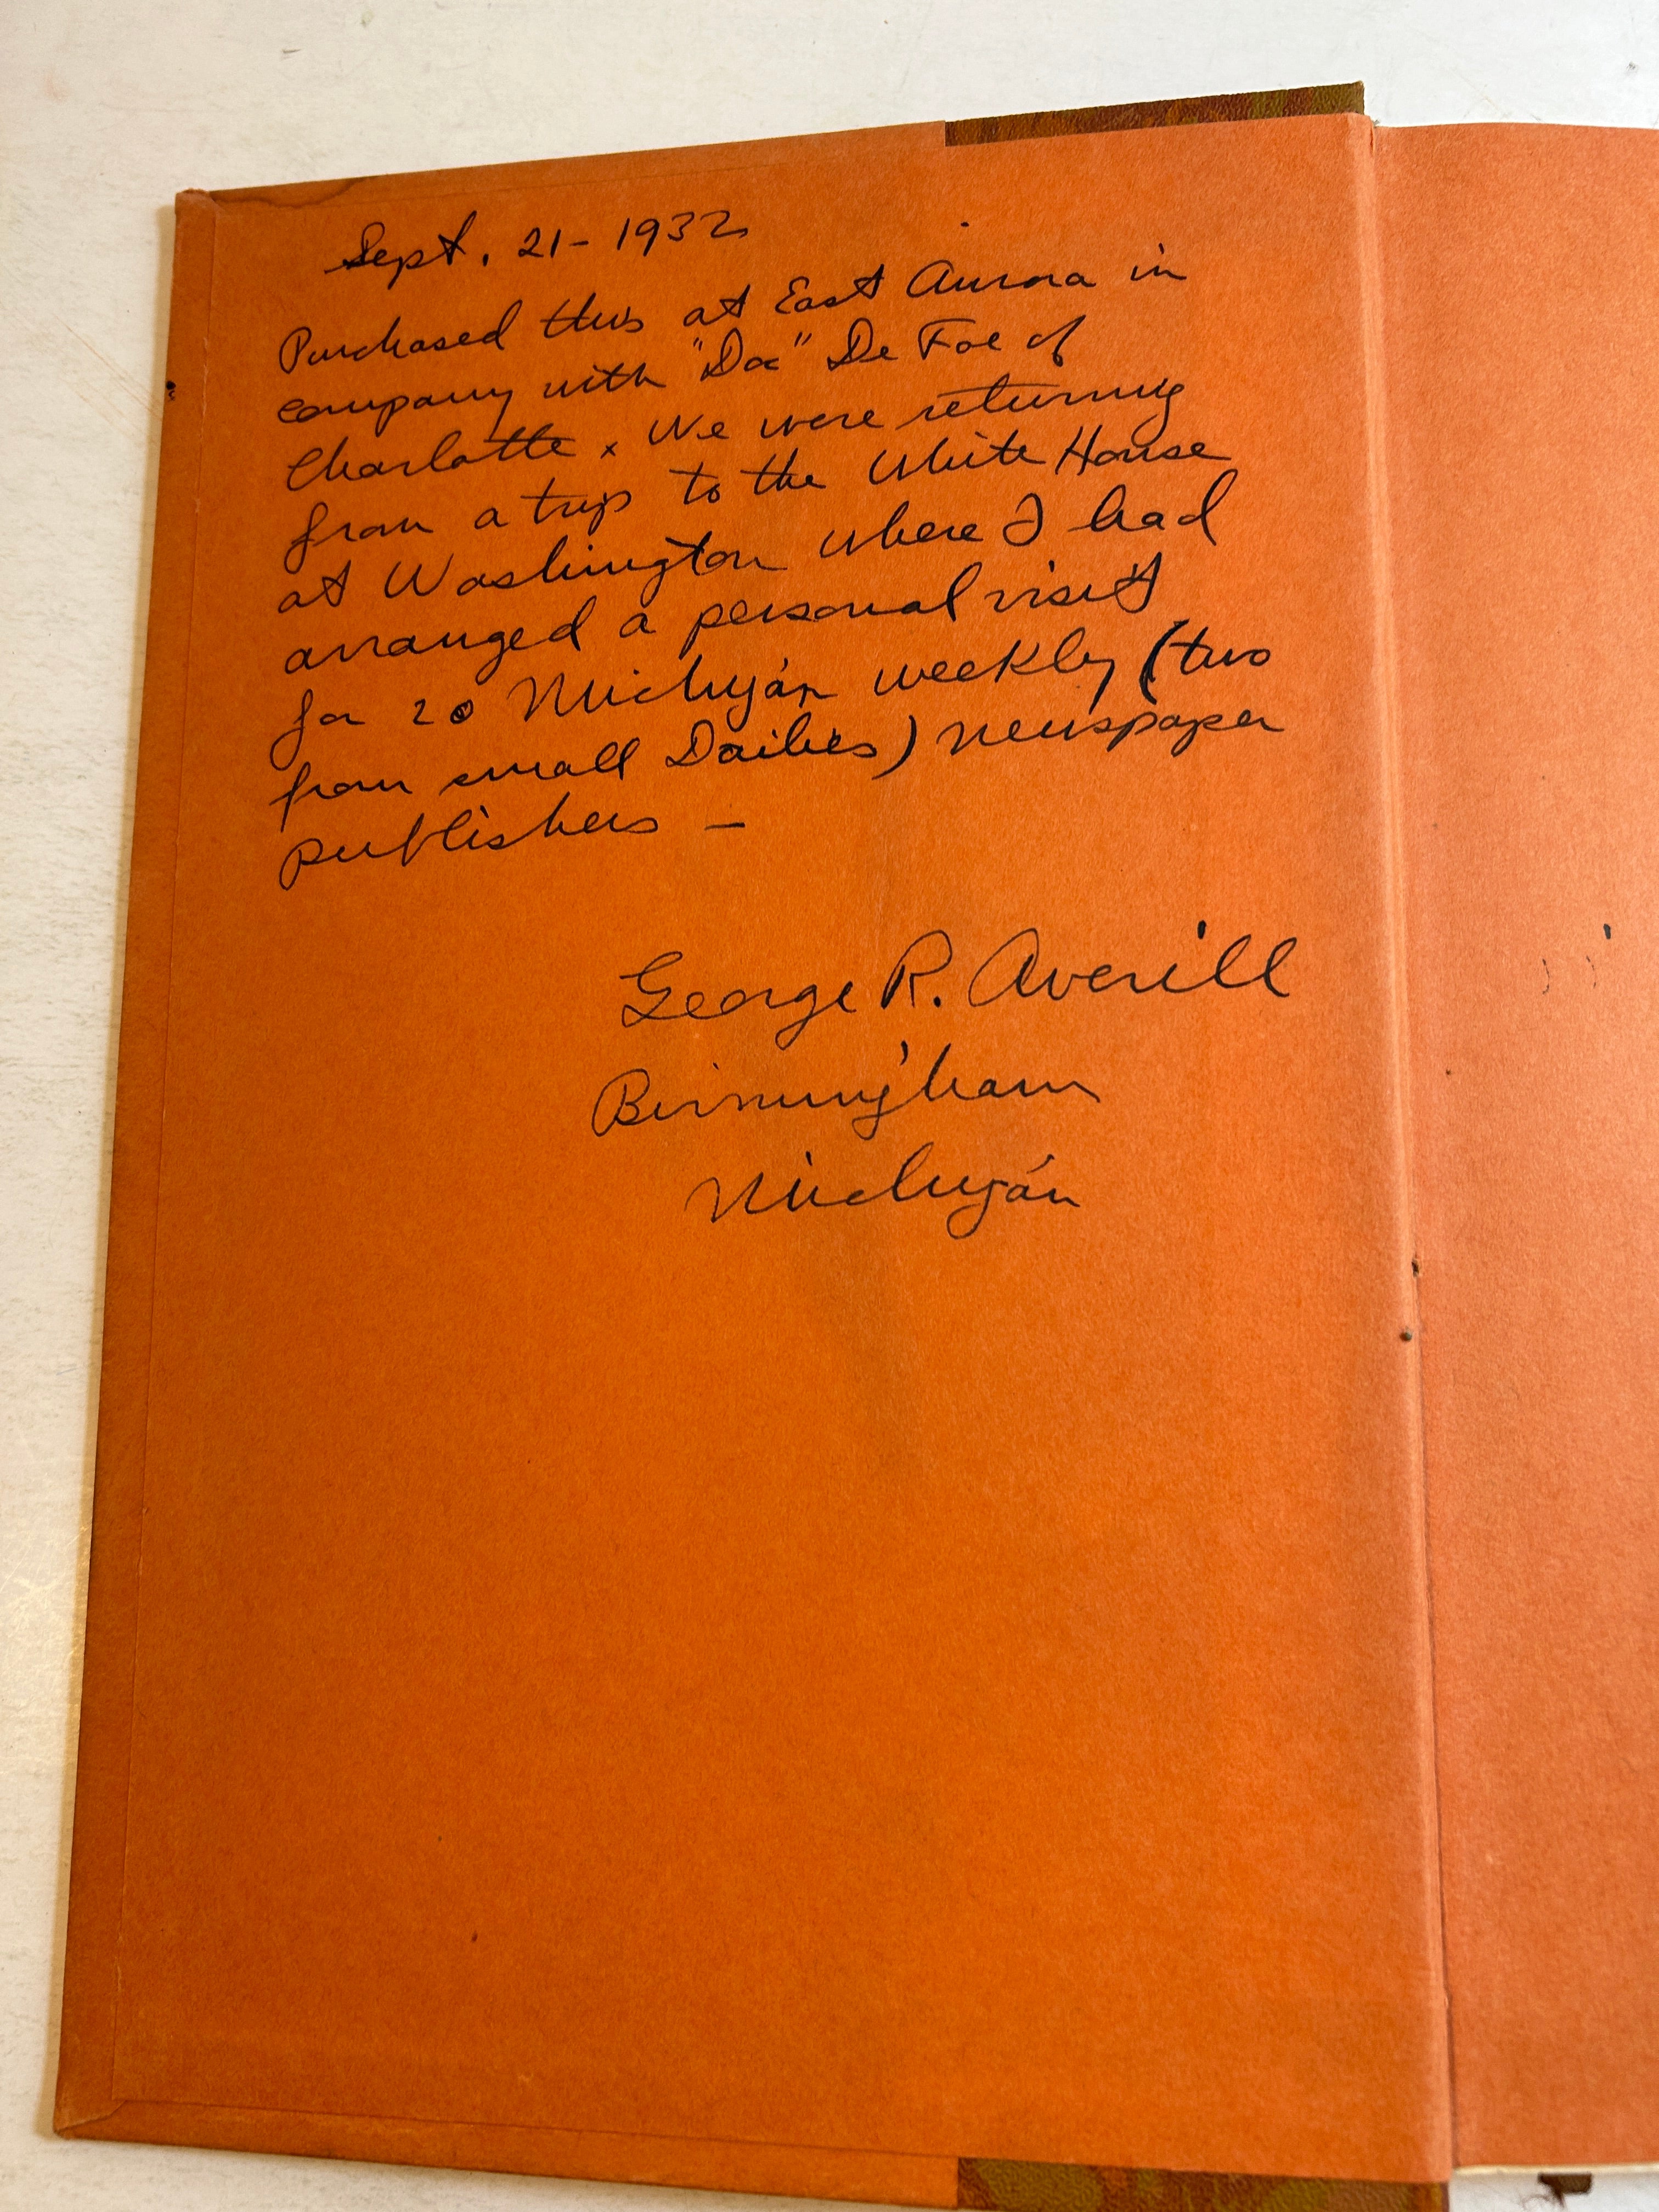 Sept. 21 - 1932
Purchased this at East Aurora in
company with "Doc" De Foe of
Charlotte x We were returning
from a trip to the White House
at Washington where I had
arranged a personal visit
for 20 Michigan weekly (two
from small Dailies) newspaper
publishers —
George R. Averill
Birmingham
Michigan